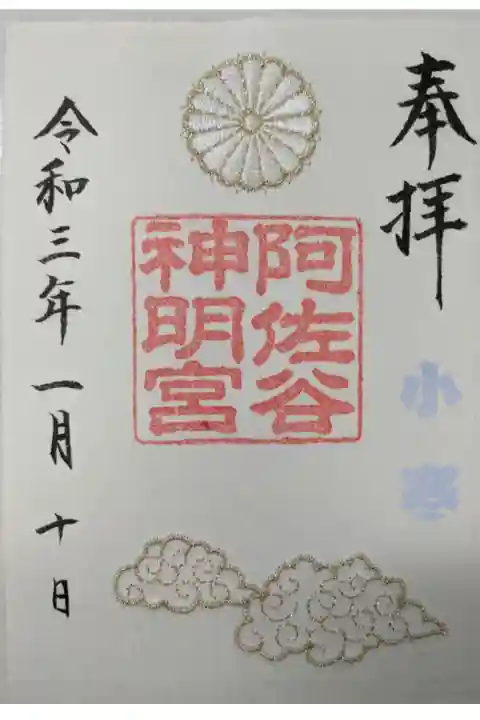 奉拝
小寒
阿佐谷
神明宮
令和三年一月十日